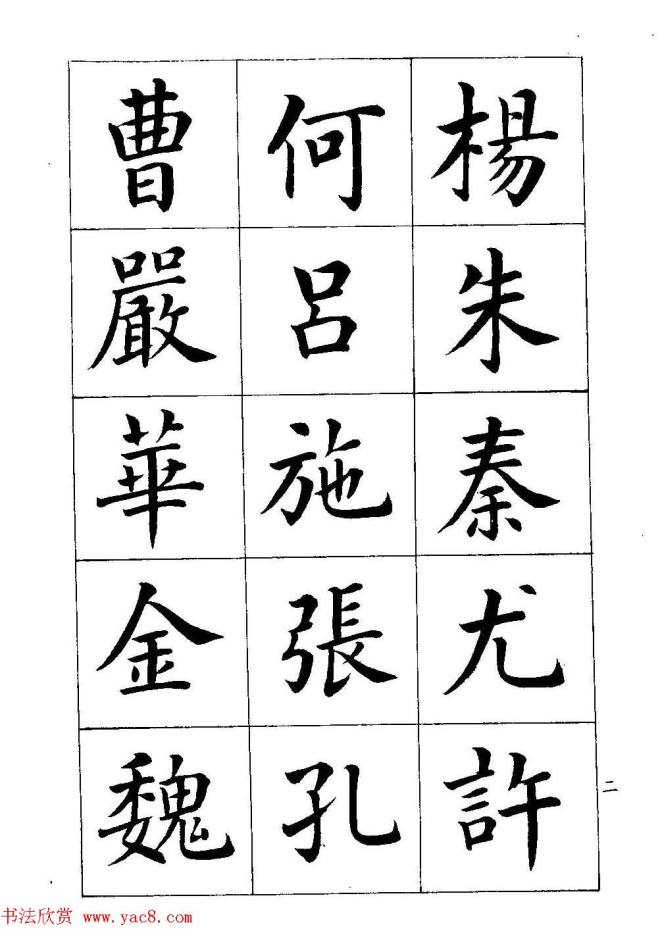 楊朱秦尤許
何呂施張孔
曹嚴華金魏
二
书法欣赏 www.yac8.com